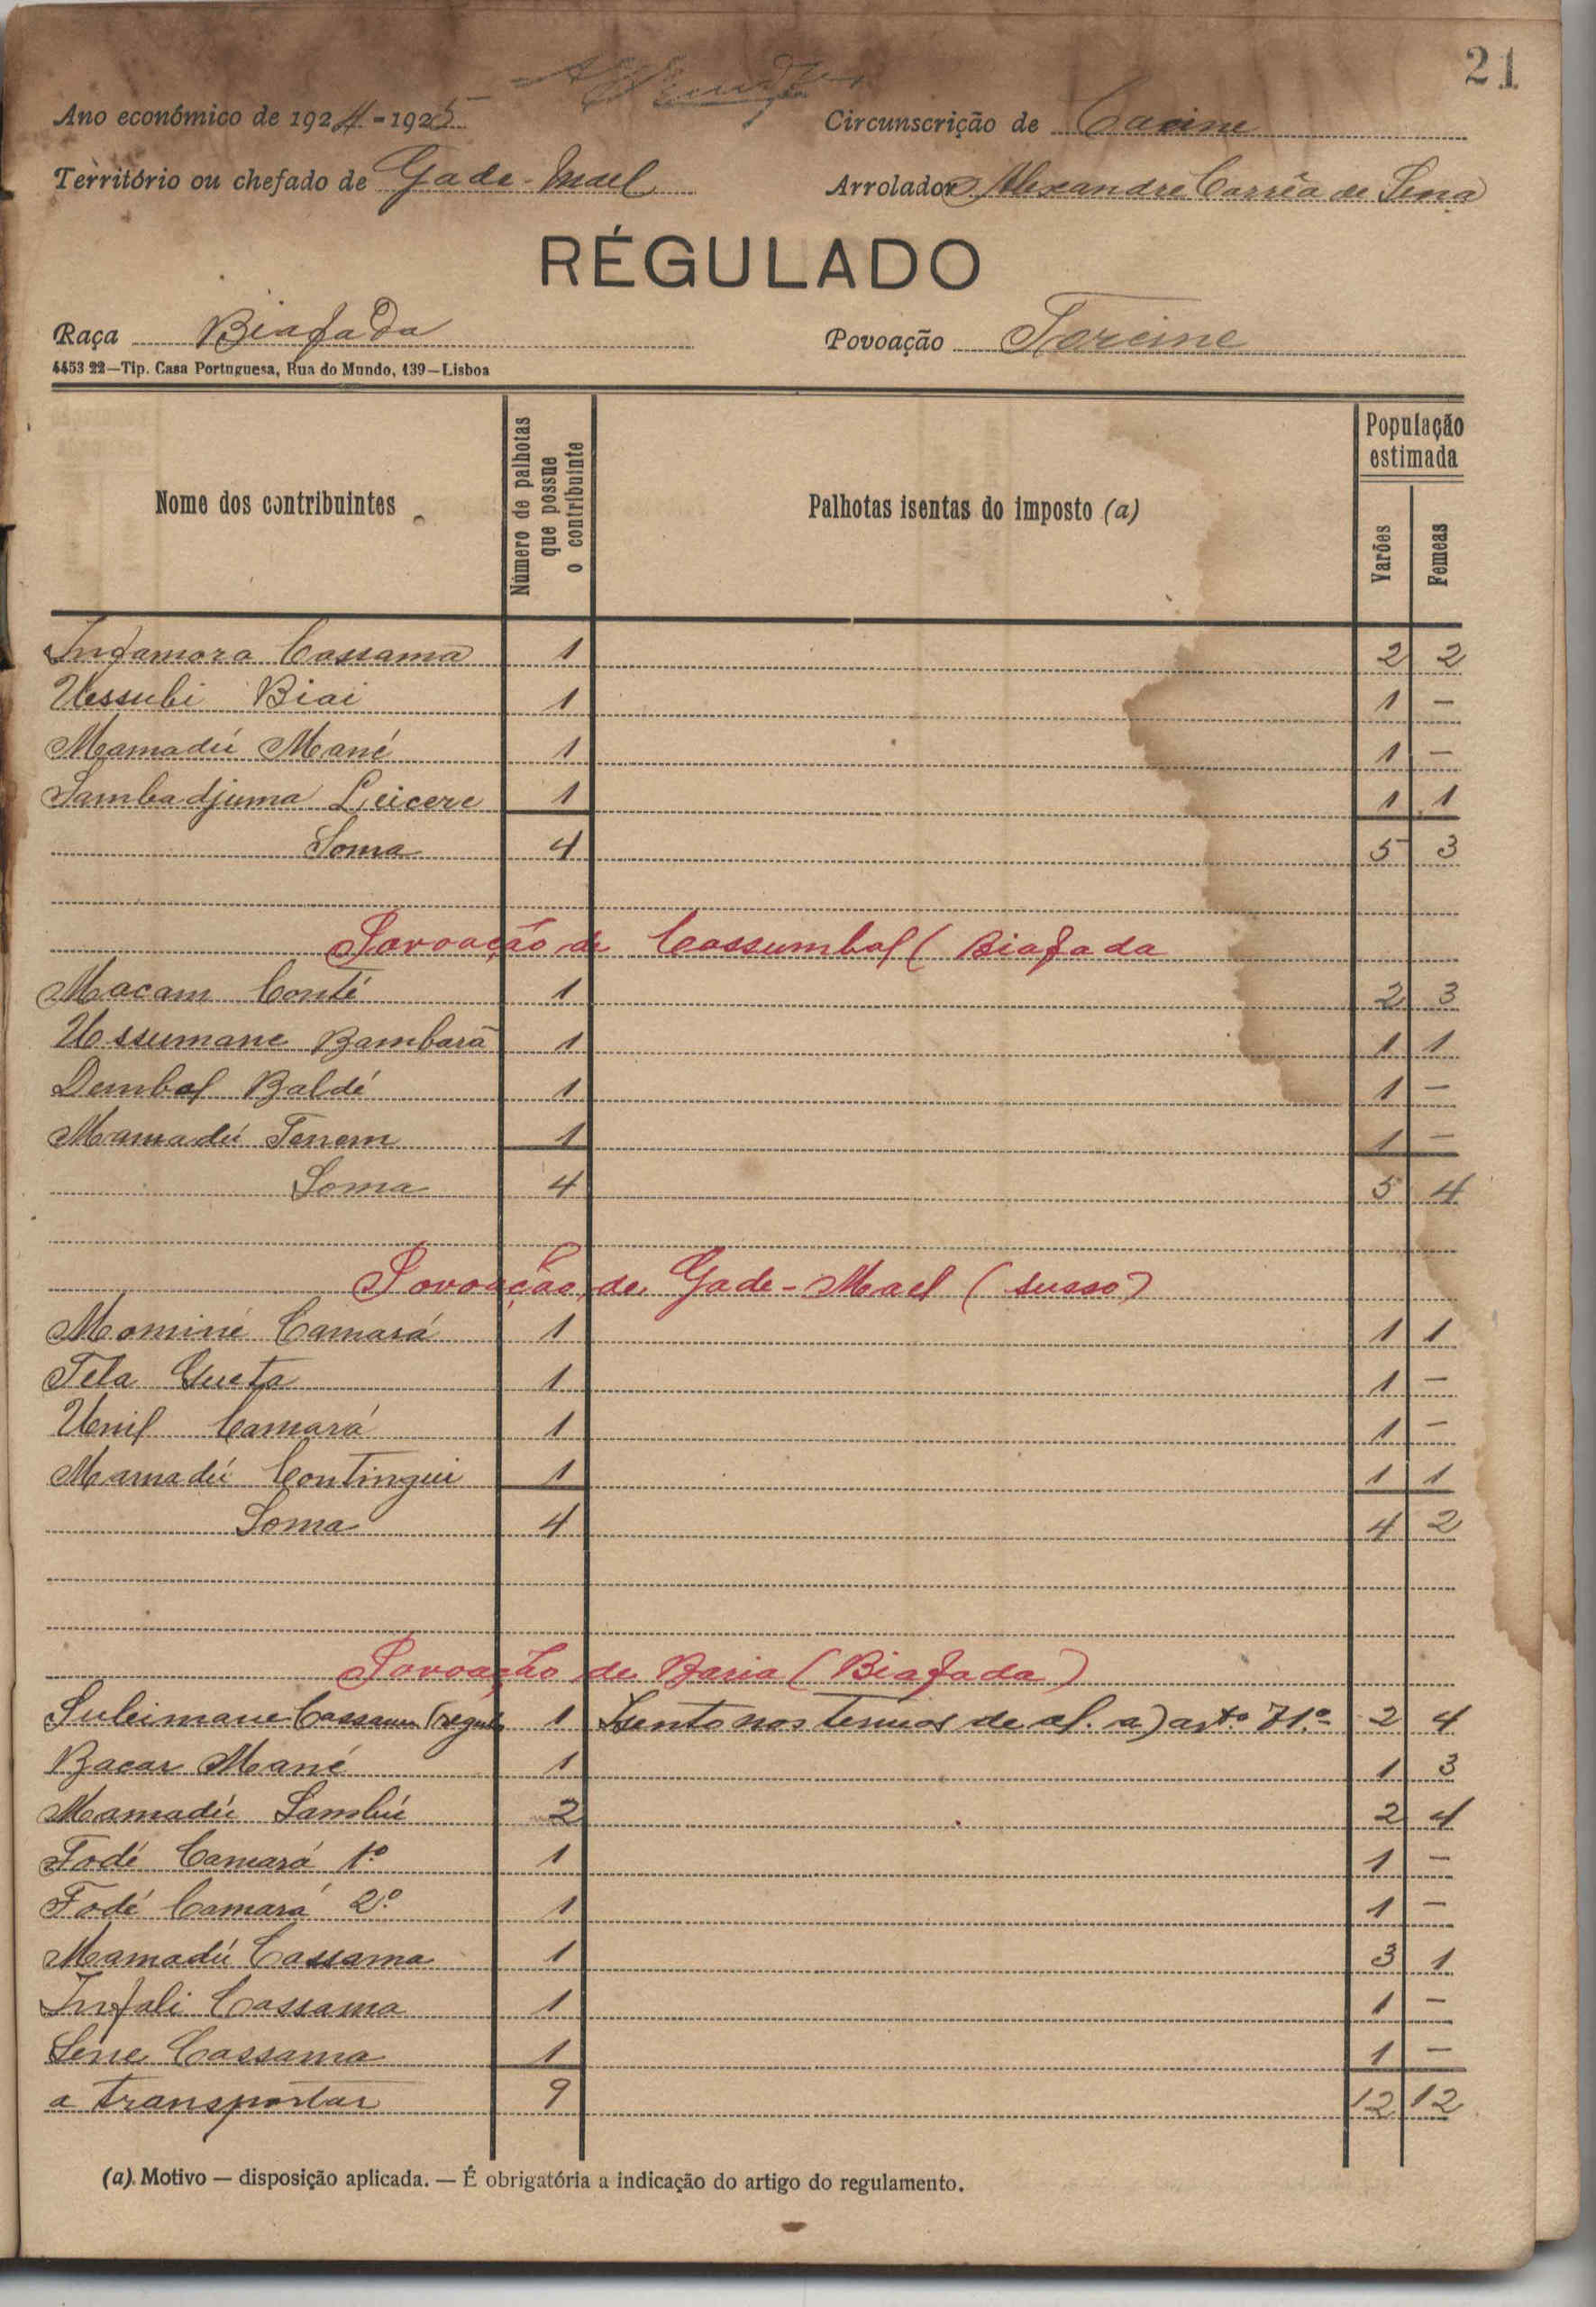 21
Ano económico de 1924-1925
Circunscrição de Cacine
Território ou chefado de Gade-Mael
Arrolador Alexandre Corrêa de Sena
RÉGULADO
Raça Biafada
Povoação
4453 22—Tip. Casa Portuguesa, Rua do Mundo, 139—Lisboa
Nome dos contribuintes
Número de palhotas que possue o contribuinte
Palhotas isentas do imposto (a)
População estimada
Varões
Femeas
Infamora Cassama 1 2 2
Ussubi Biai 1 1 -
Mamadú Mané 1 1 -
Sambadjuma 1 1 1
Soma 4 5 3
Povoação de Cassumbol (Biafada
Macam Conté 1 2 3
Ussumane Bambarã 1 1 1
Dembel Baldé 1 1 -
Mamadú Tenem 1 1 -
Soma 4 5 4
Povoação de Gade-Mael (susso)
Mominé Camará 1 1 1
Tela Gueta 1 1 -
Unil Camará 1 1 -
Mamadú Contingui 1 1 1
Soma 4 4 2
Povoação de Baria (Biafada)
Suleimane Cassama (regulo 1 Isento nos termos de al. a) artº 71.º 2 4
Bacar Mané 1 1 3
Mamadú Sambú 2 2 4
Fodé Camará 1º 1 1 -
Fodé Camará 2º 1 1 -
Mamadú Cassama 1 3 1
Infali Cassama 1 1 -
Sene Cassama 1 1 -
a transportar 9 12 12
(a). Motivo — disposição aplicada. — É obrigatória a indicação do artigo do regulamento.